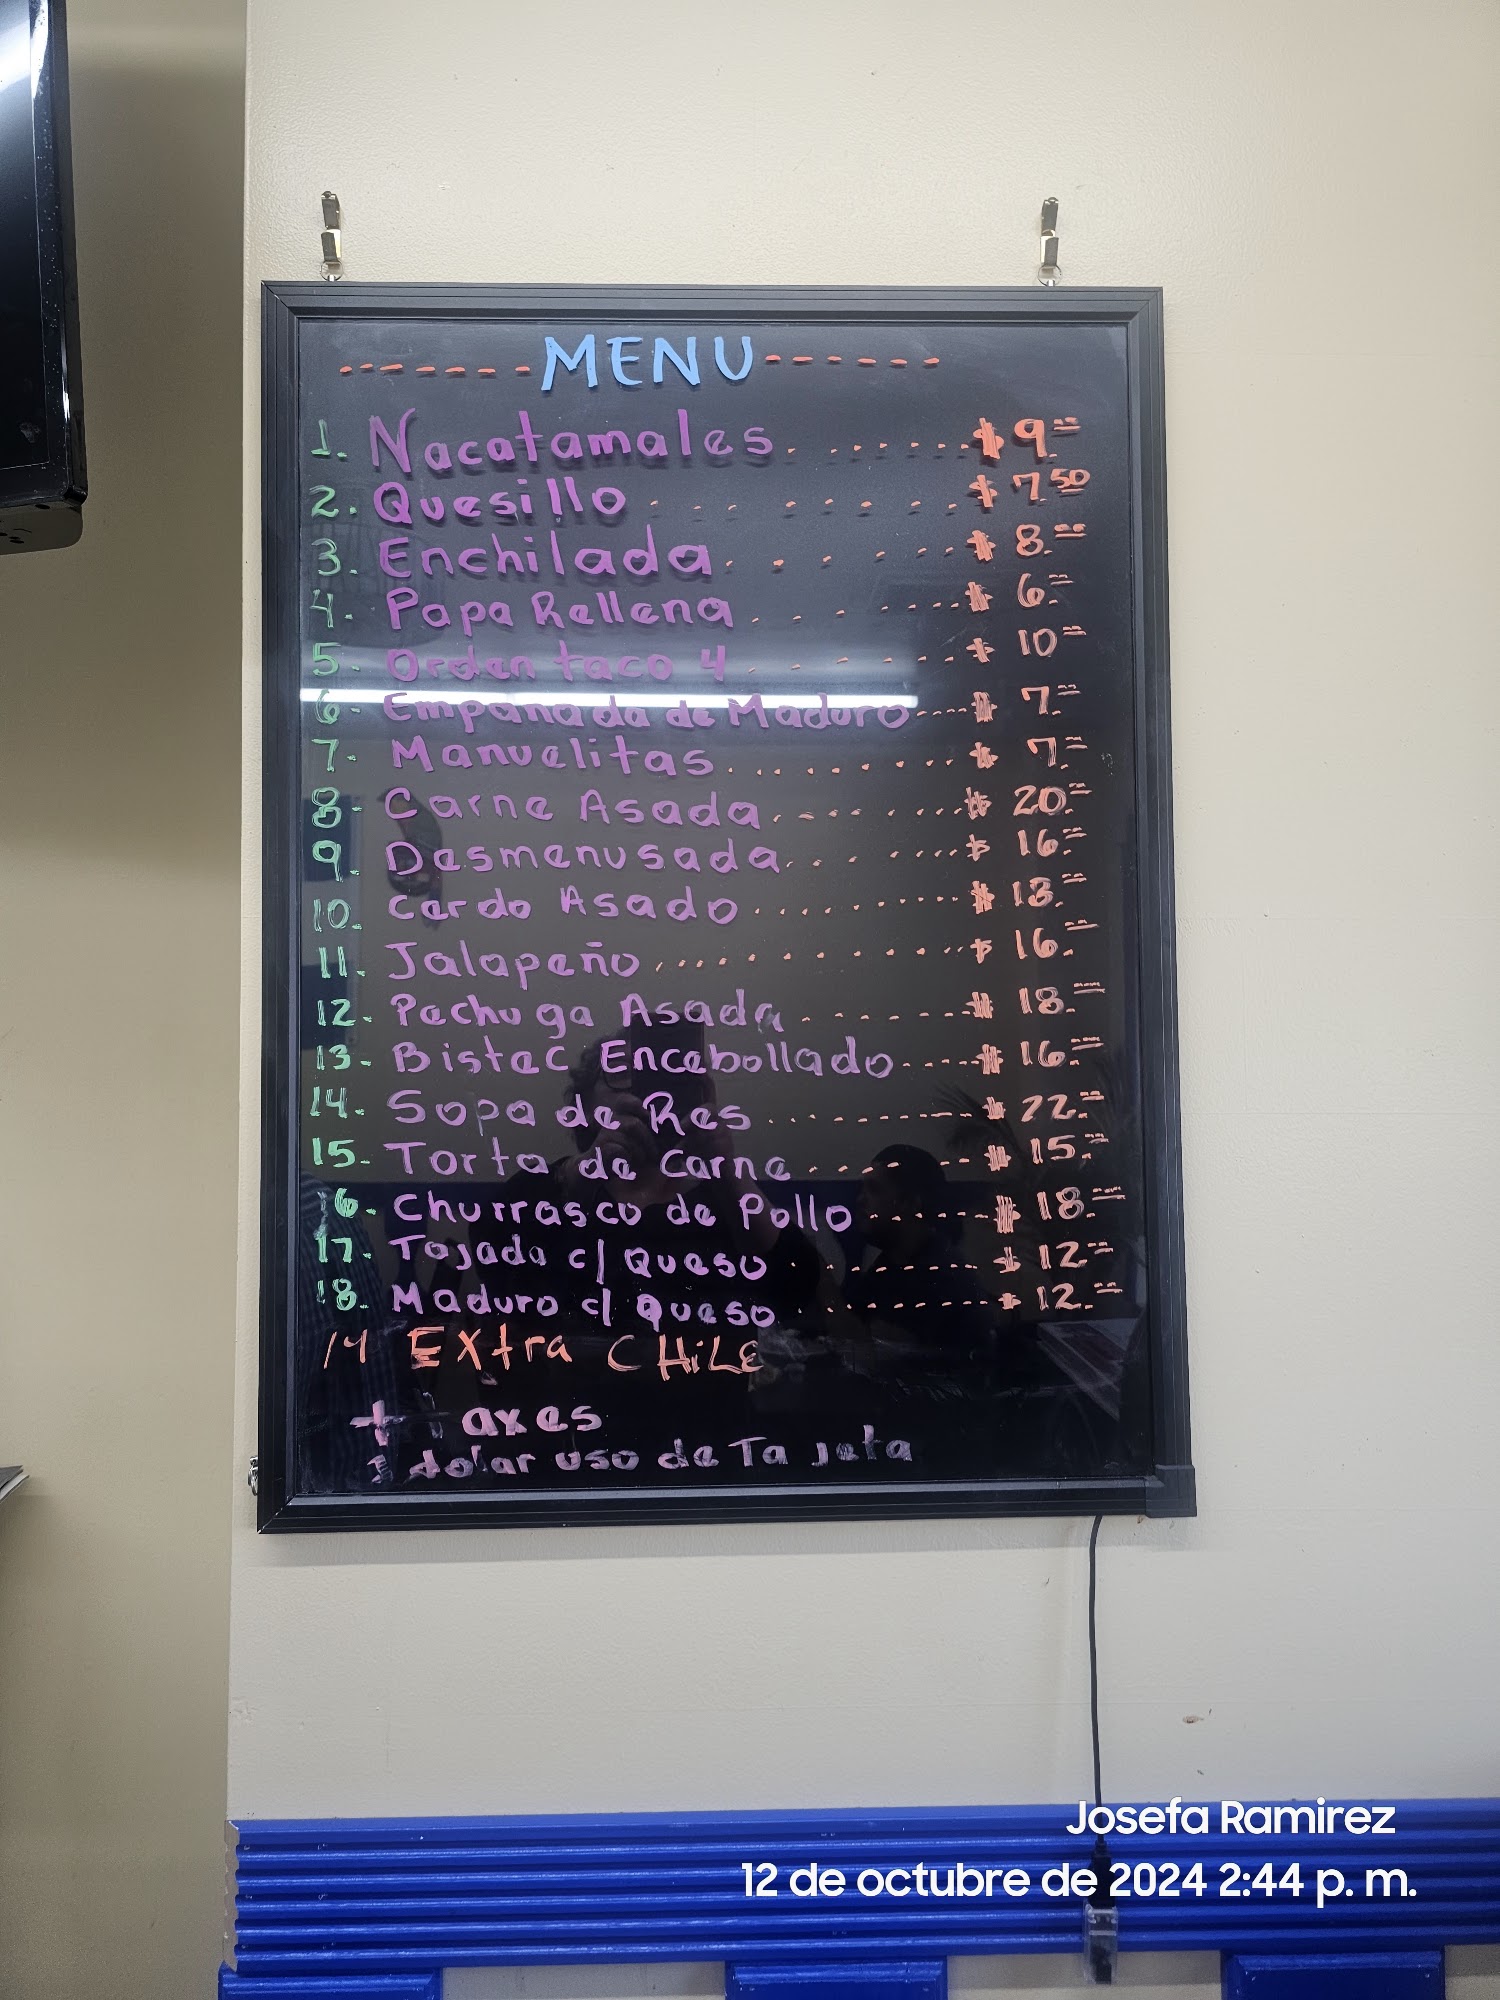 ------MENU------
1. Nacatamales. . . . . . . $ 9.=
2. Quesillo . . . . . . . . $ 7 50
3. Enchilada. . . . . . . $ 8.=
4. Papa Rellena . . . ..... $ 6.=
5. Orden taco 4 . . . . . . . $ 10=
6- Empanada de Maduro----$ 7.=
7- Manuelitas.......... $ 7.=
8- Carne Asada.......... $ 20.=
9. Desmenusada......... $ 16.=
10. Cerdo Asado........... $ 13.=
11. Jalapeño............. $ 16.=
12. Pechuga Asada------- $ 18.=
13- Bistec Encebollado----$ 16.=
14. Sopa de Res.......---- $ 22.=
15- Torta de carne.... -- $ 15.=
16. Churrasco de Pollo------$ 18.=
17. Tajada c/ queso . ------- $ 12=
18. Maduro c/ queso . ------- $ 12.=
Extra CHiLE
+ axes
dolar uso de Ta jeta
Josefa Ramirez
12 de octubre de 2024 2:44 p. m.